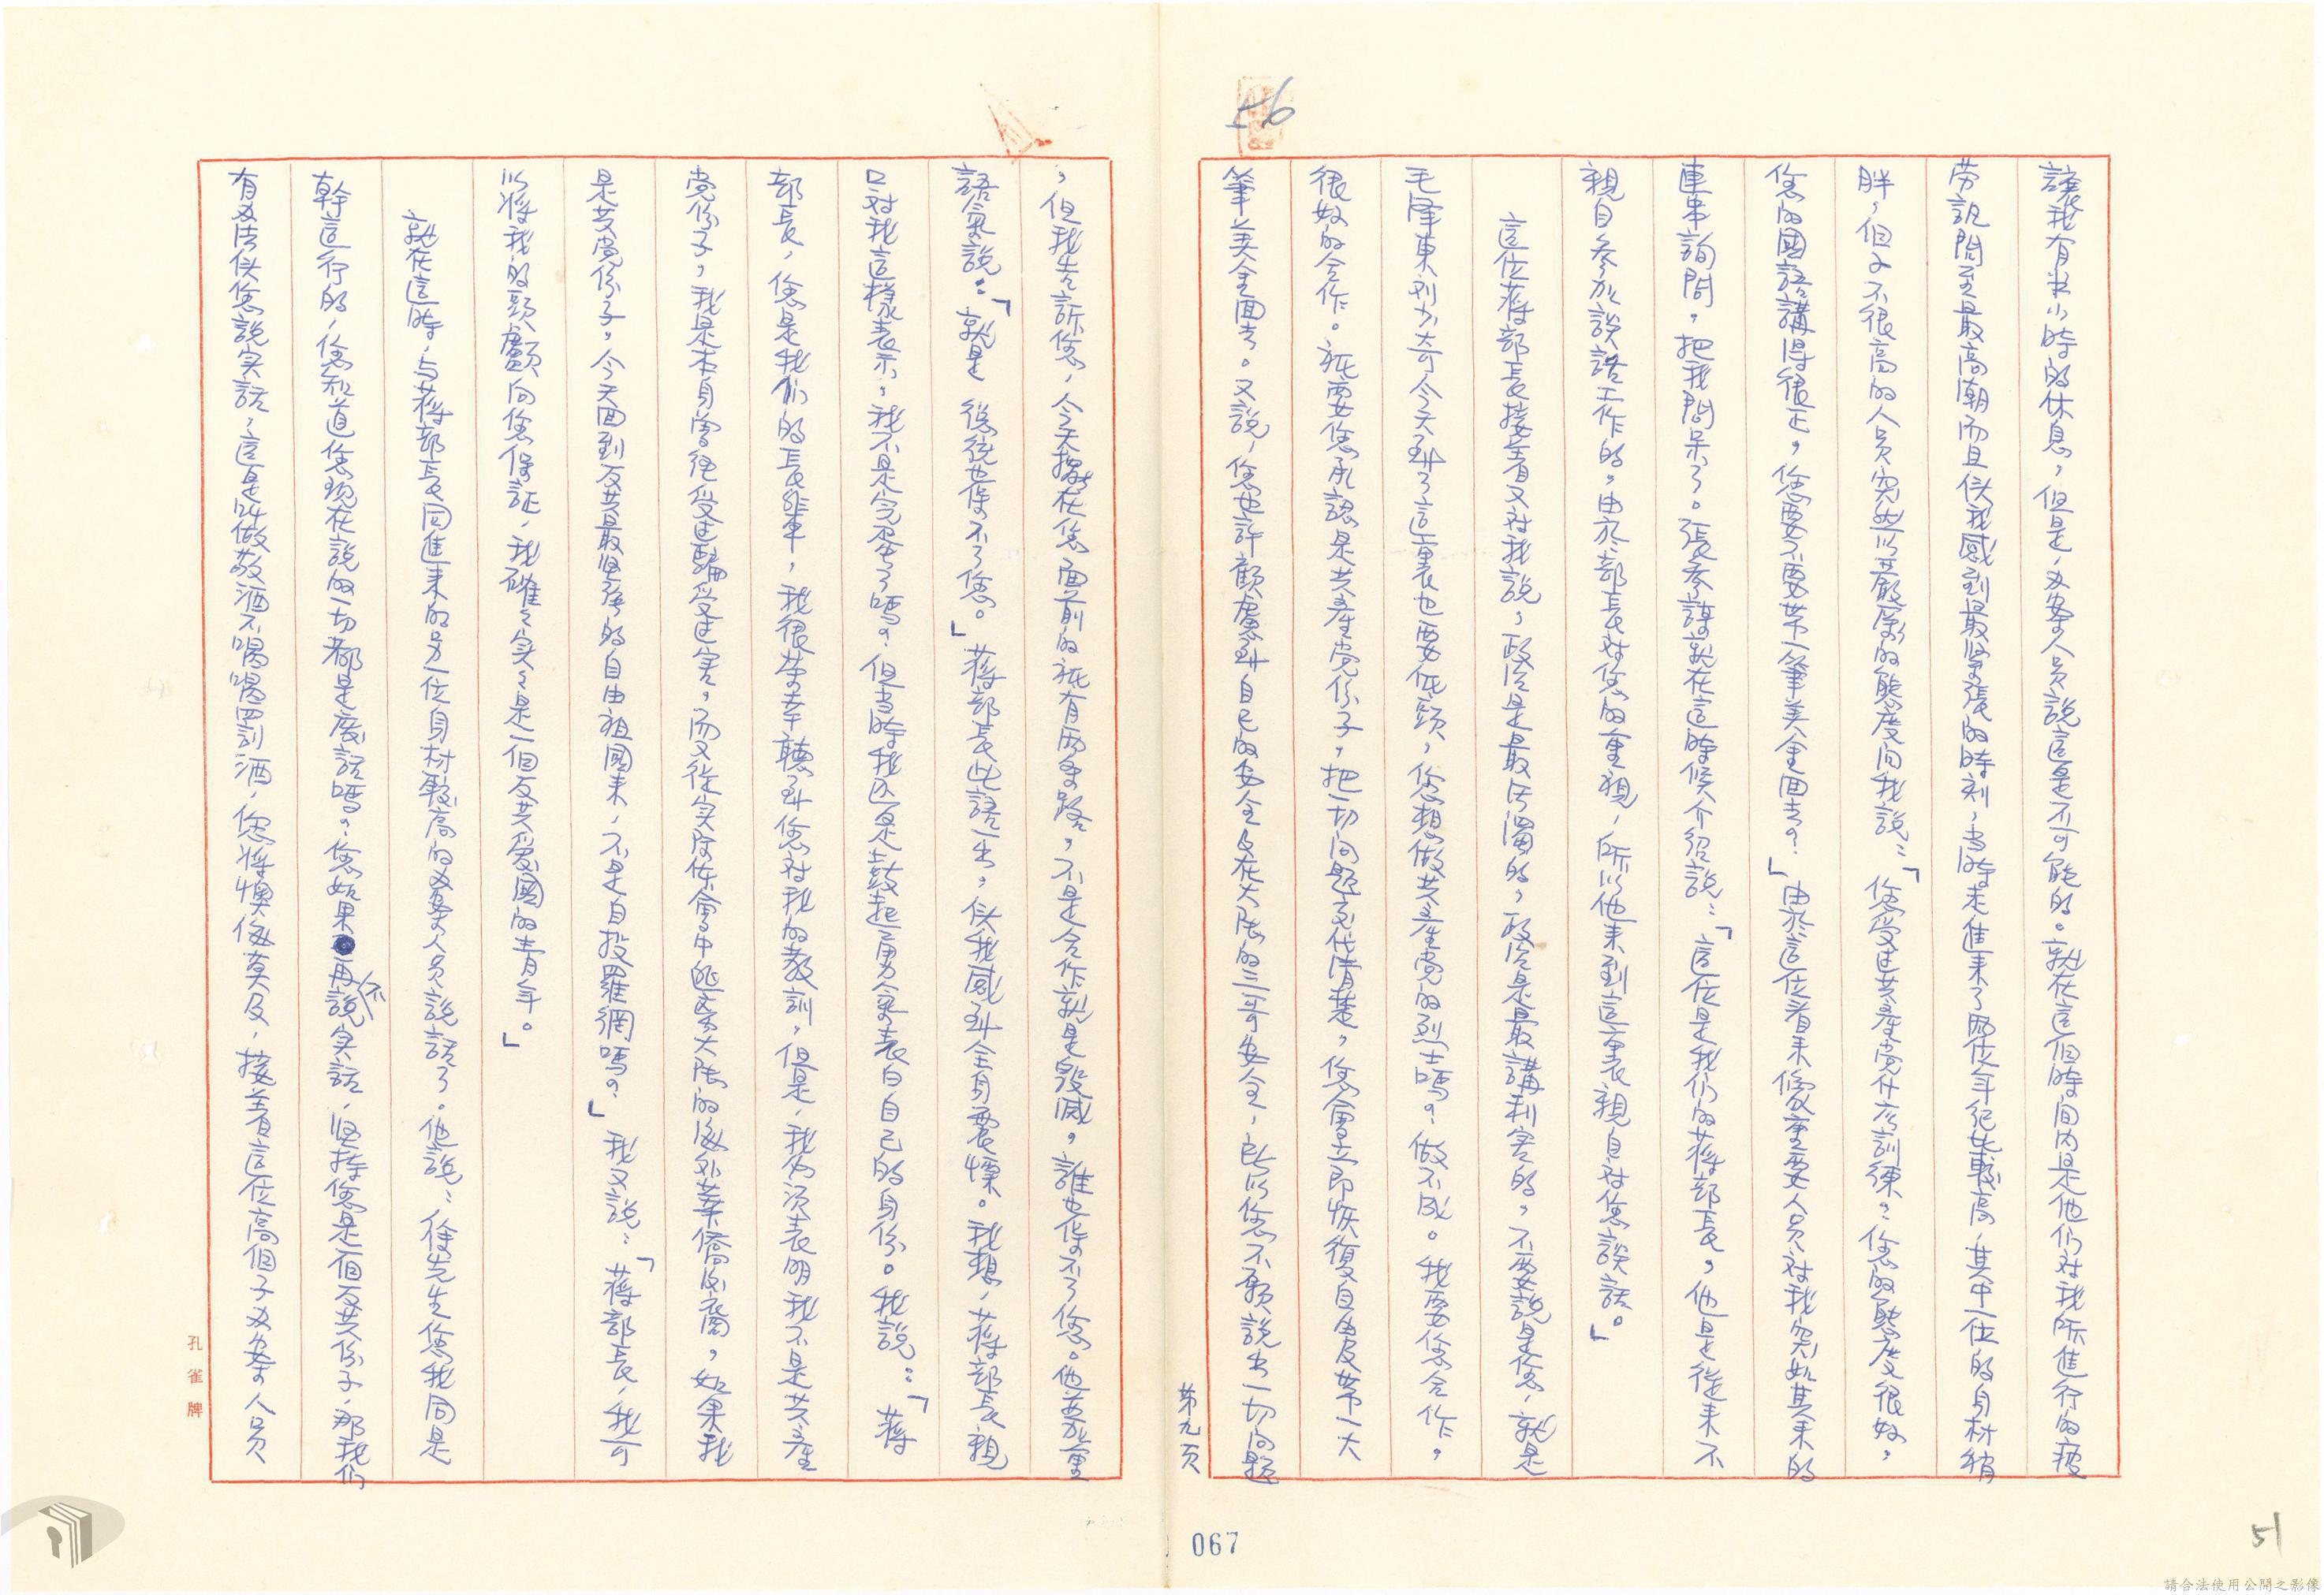 56
讓我有半小時的休息，但是，办案人員說這是不可能的。就在這個時間內是他們对我所進行的疲
劳訊問至最高潮而且使我感到最緊張的時刻，当時走進來了兩位年纪比較高，其中一位的身材稍
胖，但又不很高的人員突然以嚴厲的態度向我說：「您受过共產党什么訓練？您的態度很好，
您的國語講得很正，您要不要带一筆美金回去？」由於這位看来像重要人員对我突如其来的
連串詢問，把我問呆了。張參謀就在這時候介紹說：「這位是我们的蔣部長，他是從来不
親自參加談話工作的，由於部長对您的重視，所以他来到這裏親自对您談話。」
這位蔣部長接着又对我說，政治是最污濁的，政治是最講利害的，不要說是您，就是
毛澤東、刘少奇今天到了這裏也要低頭，您想做共產党的烈士嗎？做不成。我要您合作，
很好的合作。祇要您承認是共產党份子，把一切问题交代清楚，您會立即恢復自由及带一大
筆美金回去。又說，您也許顧慮到自己的安全及在大陆的三哥安全，所以您不願說出一切问題
第九页
，但我告訴您，今天擺在您面前的祇有兩条路，不是合作就是毀滅，誰也保不了您。他並加重
語氣說：「就是 總統也保不了您。」蔣部長此語一出，使我感到全身震慄。我想，蔣部長親
口对我這樣表示，我不是完蛋了嗎？但当時我还是鼓起勇氣表白自己的身份。我說：「蔣
部長，您是我们的長輩，我很荣幸聽到您对我的教訓，但是，我再次表明我不是共產
党份子，我是本身曾經受过騙受过害，而又從实际体會中逃离大陆的海外華僑归裔，如果我
是共党份子，今天回到反共最坚强的自由祖國来，不是自投羅網嗎？」我又說：「蔣部長，我可
以将我的頭顱向您保証，我確々实々是一個反共爱國的青年。」
就在這時，与蔣部長同進来的另一位身材較高的办案人員說話了。他說：徐先生您我同是
幹這行的，您知道您現在說的一切都是废話嗎？您如果再不說实話，坚持您是一個反共份子，那我们
有办法使您說实話，這是叫做敬酒不喝喝罰酒，您将懊悔莫及，接着這位高個子办案人員
孔雀牌
067
51
請合法使用公開之影像